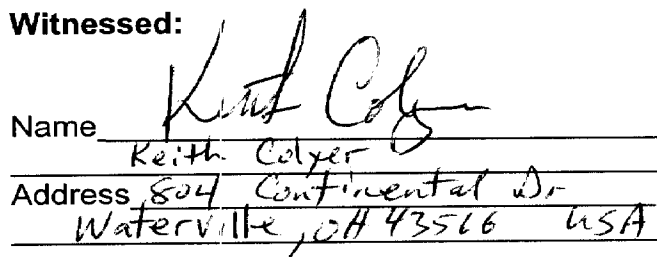 Witnessed:
Name Keith Colyer
Keith Colyer
Address 804 Continental Dr
Waterville, OH 43566 USA